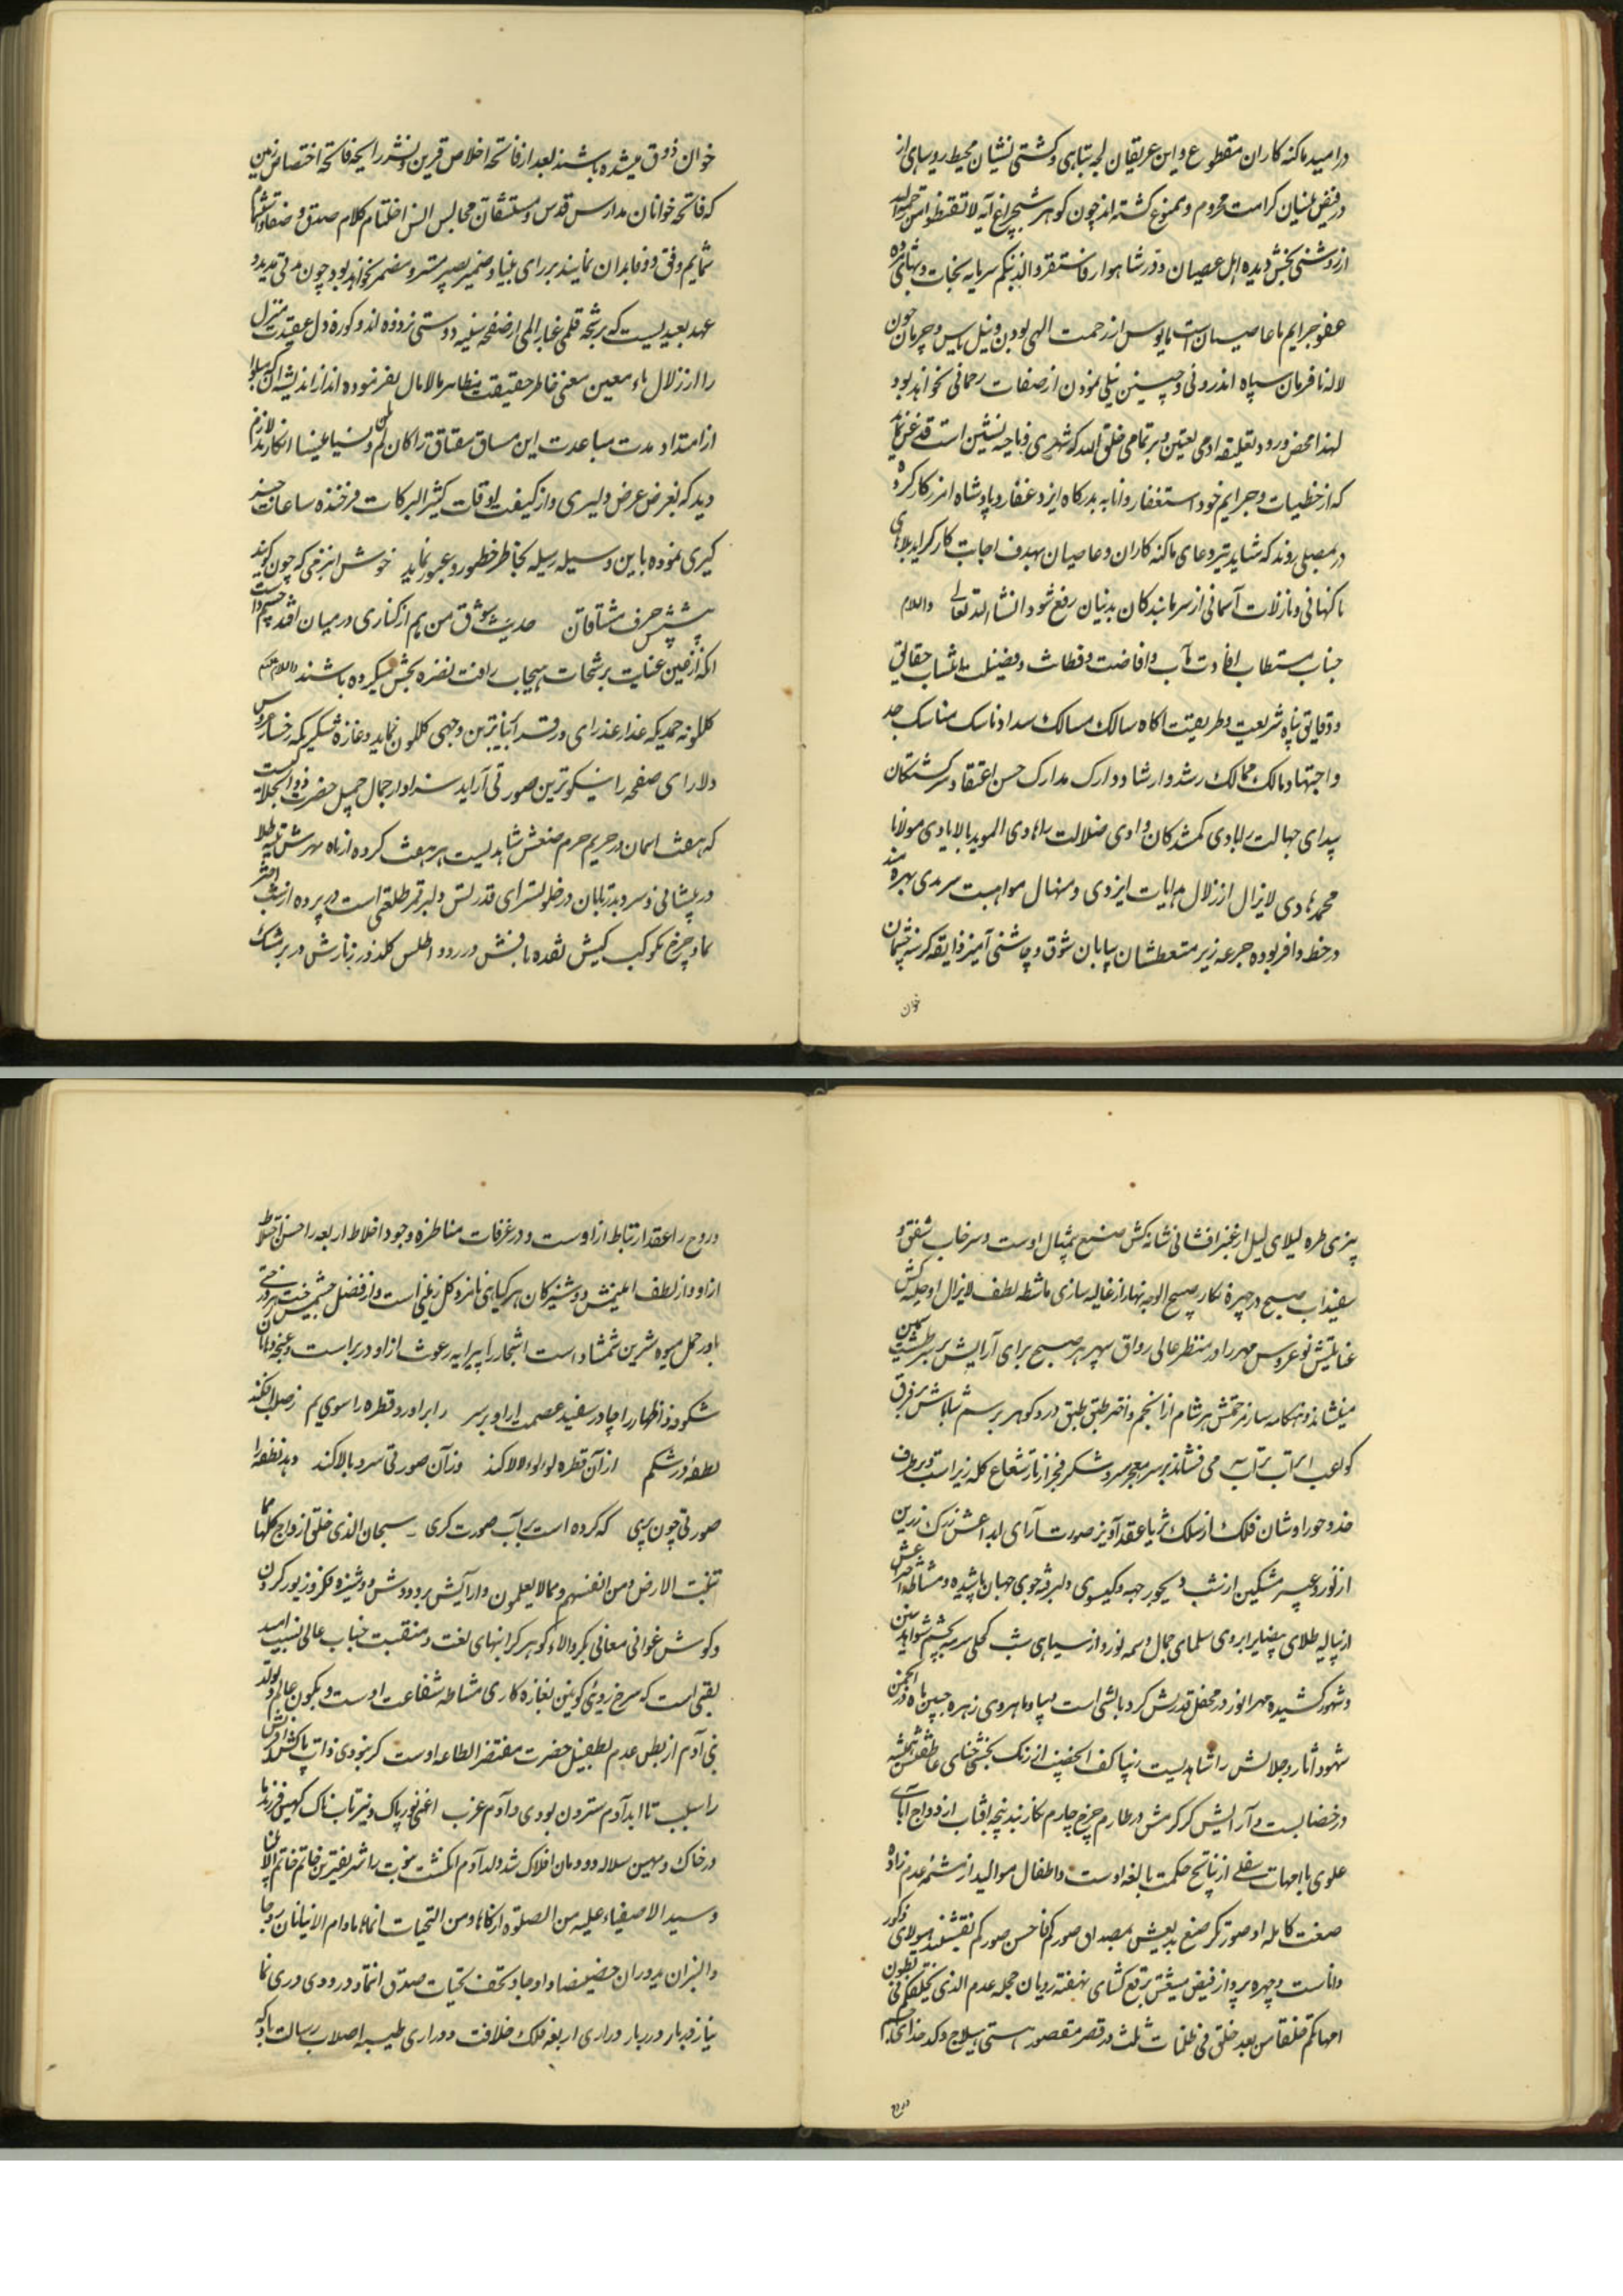 در امید ماکنه کاران مقطوع و این غریقان لجه تباهی و کشتی نشیان محیط روسیاهی از
در فیض بنیان کرامت محروم و ممنوع کشته اند چون کوهر شبچراغ آیه لا تقنطوا من رحمة الله
از روشنی بخش دیده اهل عصیان و در شاهوار فاستغفروا لذنبکم سرمایه نجات و بهانی ده
عفو جرایم ما عاصیان است مایوس از رحمت الهی بودن و نیل یاس و حرمان چون
لاله نافرمان سیاه اندرونی و جبین نیلی نمودن از صفات رحمانی نخواهد بود
لهذا محض ورود تعلیقه ادمی یقین و بر تمامی خلق الله که شهری و ناحیه نشین است قدغن نماید
که از خطیات و جرایم خود استغفار و انابه بدرکاه ایزد غفار و پادشاه امرزکار کرده
در مصلی روند که شاید تیر دعای ماکنه کاران و عاصیان بهدف اجابت کارکر اید بلای
ناکهانی و نازلات آسمانی از سر ما بندکان بدنیان رفع شود انشاء الله تعالی والسلام
جناب مستطاب افادت مآب و افاضت و فطانت و فضیلت مآب حقایق
و دقایق پناه شریعت و طریقت آکاه سالک مسالک سداد ناسک مناسک جد
و اجتهاد مالک ممالک رشد و ارشاد دارک مدارک حسن اعتقاد سرکشتکان
بیدای جهالت را هادی کمشدکان وادی ضلالت راهادی الموید بالایادی مولانا
محمد هادی لایزال از زلال هدایات ایزدی و منهال مواهبت سرمدی بهره مند
در حظ وافر بوده جرعه ریز متعطشان بیابان شوق و چاشنی آمیز ذایقه کرسنه چشمان
خوان
خوان ذوق میشده باشند بعد از فاتحه اخلاص قرین و نشر رایحه فاتحه اختصاص رنین
که فاتحه خوانان مدارس قدس و مستنشقان مجالس انس اختتام کلام صدق و صفا و اشمام
شمایم وفق و وفا بدان نمایند بر رای بنیا و ضمیر بصیر مستتر و مضمر نخواهد بود چون مدتی مدید و
عهد بعیدیست که برشحه قلمی غبار الم از صفحه سینه دوستی نزدوده اند و کوره دل عقیدت منزل
را از زلال ماء معین معنی خاطر حقیقت مظاهر مالامال نفرموده اند از اندیشه آن که مبادا
از امتداد مدت مباعدت این مساق مشتاق را کان لم یکن و نسیا منسیا انکارند لازم
دید که بعرض عرض دلیری و از کیفیت اوقات کثیر البرکات فرخنده ساعات خبر
کیری نموده باین وسیله رسیله بخاطر خطور و عبور نماید خوش ان بزمی که چون کویند
پیشش حرف مشتاقان حدیث شوق من هم از کناری در میان افتد چشم داشت
آنکه از عین عنایت برشحات سحاب رافت نضره بخش میکرده باشند والسلام علیکم
کلکونه حمدیکه عذار عذرای ورقه را بزیباترین وجهی کلکون نماید و غازه شکریکه رخساره عروس
دلارای صفحه را نیکوترین صورتی آراید سزاوار جمال جمیل حضرت ذوالجلالیست
که هفت اسمان در حریم حرم صنعش شاهدیست بر هفت کرده از ماه مهرش تکیه طلا
در پیشانی و سرو بدر تابان در خلوتسرای قدرتش دلبر قمر طلعتی است در پرده از شب اختر
نما و چرخ کوکب کیش نقده بافش در رود اطلس کلدوز زنارش در برشک
پزی طره لیلای لیل از عنبر افشانی شانه کش صنع بیمثال اوست و سرخاب شفق و
سفیداب صبح در چهره نکار صبیح الوجه نهار از غالیه سازی ماشطه لطف لایزال او جلیه کش
عنایتش نو عروس مهر را در منظر عالی رواق سپهر هر صبح برای آرایش بر طشت سیمین
مینشاند و هنکامه ساز مرحمتش هر شام از انجم و اختر طبق طبق در و کوهر بر رسم شاباش بر فرق
کواعب اتراب می فشاند بر سر معجر سر و شکر فجر از تار شعاع کله زیراست و بر طرف
خد و حوراوشان فلک از سلک ثریا عقد آویز صورت آرای ابداعش ترک زرین
از نور و عبیر مشکین از شب دیجور جبهه و کیسوی دلبر فرخ جوی جهان پاشیده و مشاطه اختراعش
از پیاله طلای بیضا بر ابروی سلمای جمال وسمه نور و از سیاهی شب کحلی سرمه بچشم شواهد سنین
و شهور کشیده مهر انور در محفل قدرتش کرد بالشی است دیبا و ماه روی زهره جبین ماه در انجمن
شهود آثار و جلالش راشاهدیست زیبا کف الخضیب از رنک بخشی حنای عاطفتش همیشه
در خضابست و آرایش کر کرمش در طارم چرخ چارم نکار بند پنجه افتاب ازدواج آبای
علوی با امهات سفلی از نتایج حکمت بالغه اوست و اطفال موالید از مشیمه عدم زاده
صنعت کامله او صورتکر صنع بدیعش بمصداق صورکم فاحسن صورکم نقشبند هیولای ذکور
و اناث است و چهره پرداز فیض مبثتش برقع کشای نهفته رویان حجله عدم الذی یخلقکم فی بطون
امهاتکم خلقا من بعد خلق فی ظلمات ثلث در قصر مقصور هستی ایلاج و کد خدای جسم
و روح
و روح را عقد ارتباط از اوست و در غرفات مناظره وجود اخلاط اربعه را حسن اختلاط
از او و از لطف اعلیش دوشیزکان هر کیاهی نازه و کل زعنی است و از فضل حشمتش درختی
باور حمل میوه شیرین شمشاد است اشجار را پیرایه رعونت از او در بر است و غنچه دهان
شکوفه ازهار را چادر سفید عصمت از او بر سر ز ابر اورد قطره را سوی یم ز صلب افکند
نطفه در شکم از آن قطره لولو لالا کند وزان صورتی سرو بالا کند دهد نطفه را
صورتی چون پری که کرده است بر آب صورت کری سبحان الذی خلق ازواج کلها مما
تنبت الارض و من انفسهم و مما لا یعلمون و ارآیش بر و دوش دوشیزه فکر و زیور کردن
و کوش غوانی معانی بکر و الاء کوهر کرانبهای نعت و منقبت جناب عالی نسیب امید
لقبی است که سرخ روئی کونین بغازه کاری مشاطه شفاعت اوست و بکون عالم و تولد
بنی آدم از بطن عدم بطفیل حضرت مفترض الطاعه اوست کر نبودی ذات پاکش آفرینش
را سبب تا ابد آدم سترون بودی و آدم عزب اعنی نور پاک و نیر تابناک کهین فرزند
در خاک و مهین سلاله دودمان افلاک شد ولد آدم انکشت نبوت را شریفترین خاتم خاتم الانبیاء
و سید الاصفیاء علیه من الصلوة ارکاها و من التحیات انماها مادام الانیانان
والنیران یدوران حضیضا و اوجا و تحف تحیات صدق انتما و درودی دری نما
نیاز دربار درر بار دراری اربعه فلک خلافت و دراری طیبه اصلاب رسالت